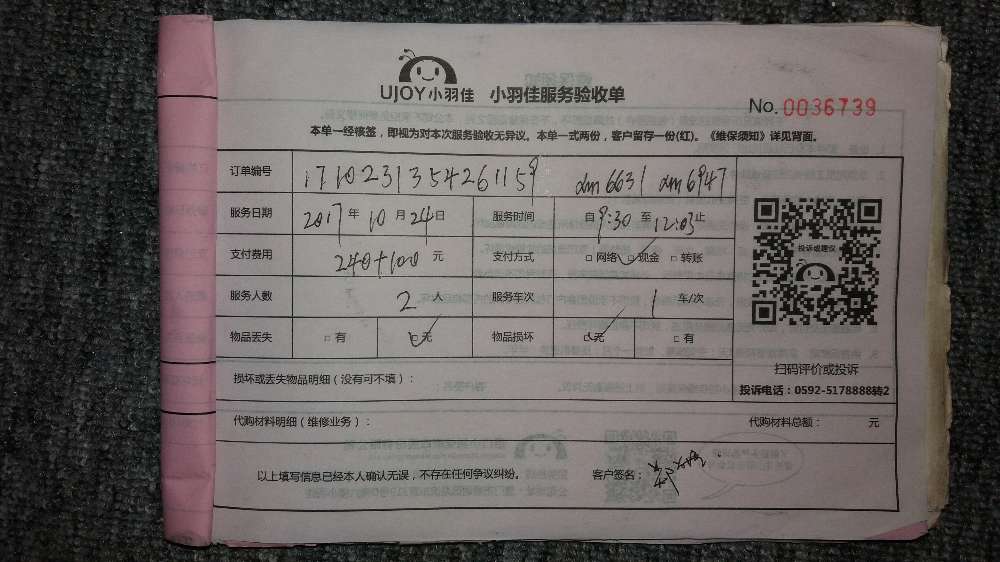 UJOY小羽佳 小羽佳服务验收单
No. 0036739
本单一经核签，即视为对本次服务验收无异议。本单一式两份，客户留存一份(红)。《维保须知》详见背面。
订单编号 1710231354261159 dm6631 dm6947
服务日期 2017年10月24日 服务时间 自9:30至12:03止
支付费用 240+100元 支付方式 □网络 □现金 □转账
服务人数 2人 服务车次 1车/次
物品丢失 □有 □无 物品损坏 □无 □有
投诉或建议
扫码评价或投诉
投诉电话：0592-5178888转2
损坏或丢失物品明细（没有可不填）：
代购材料明细（维修业务）： 代购材料总额： 元
以上填写信息已经本人确认无误，不存在任何争议纠纷。 客户签名：